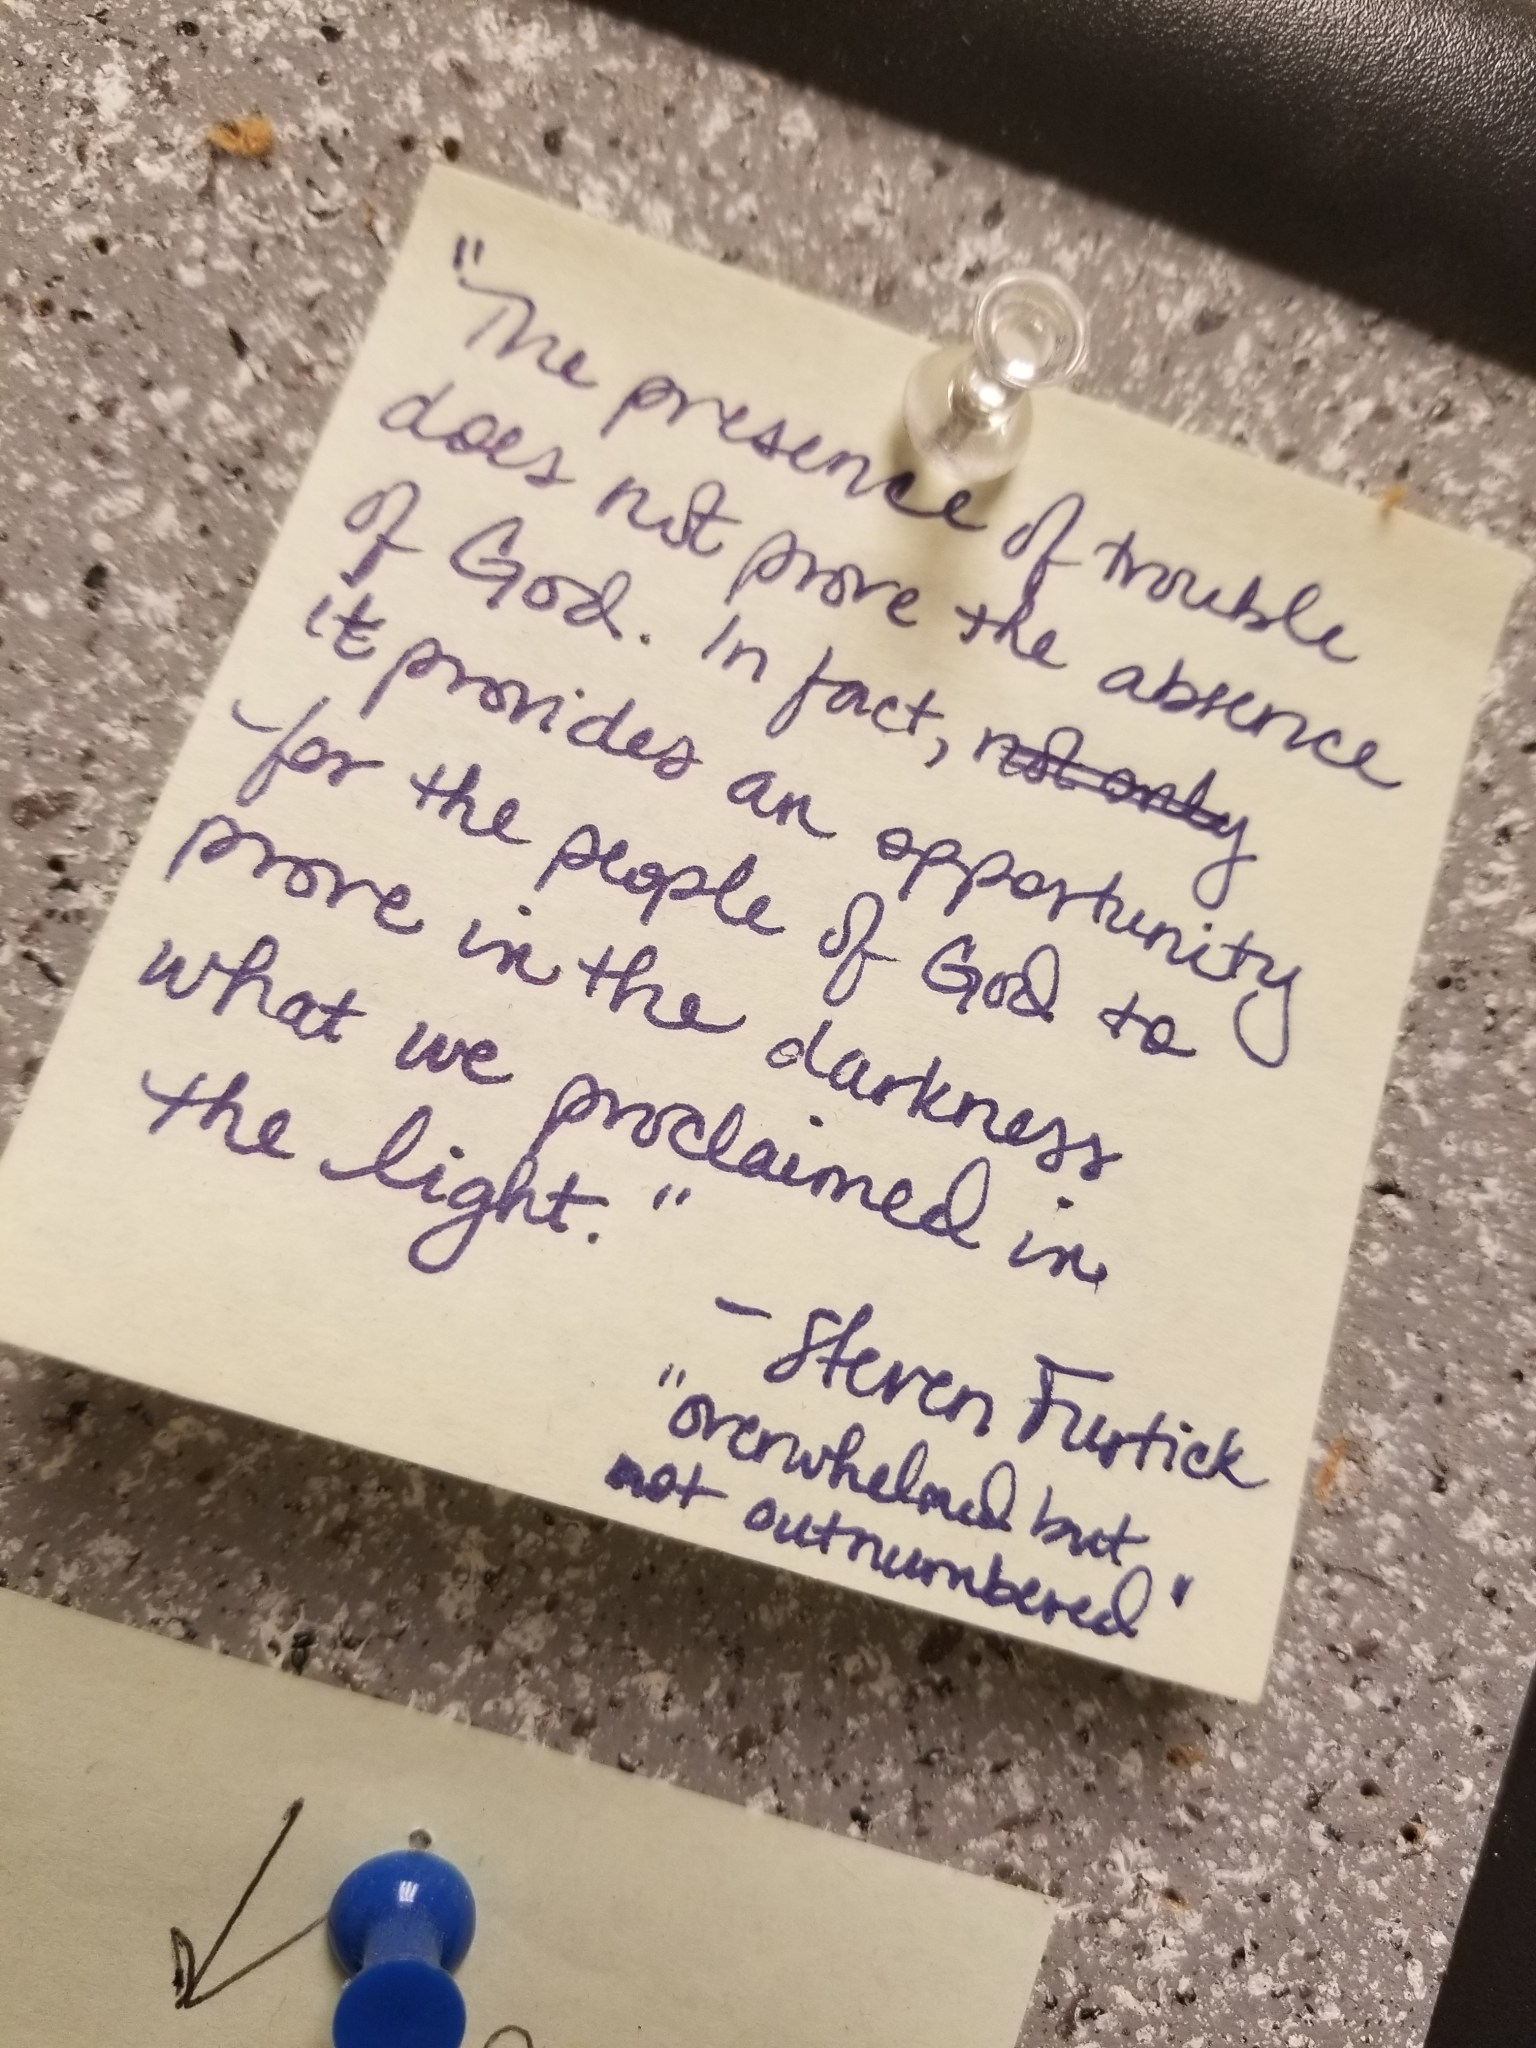 "The presence of trouble
does not prove the absence
of God. In fact, not only
it provides an opportunity
for the people of God to
prove in the darkness
what we proclaimed in
the light."
- Steven Furtick
"overwhelmed but
not outnumbered"